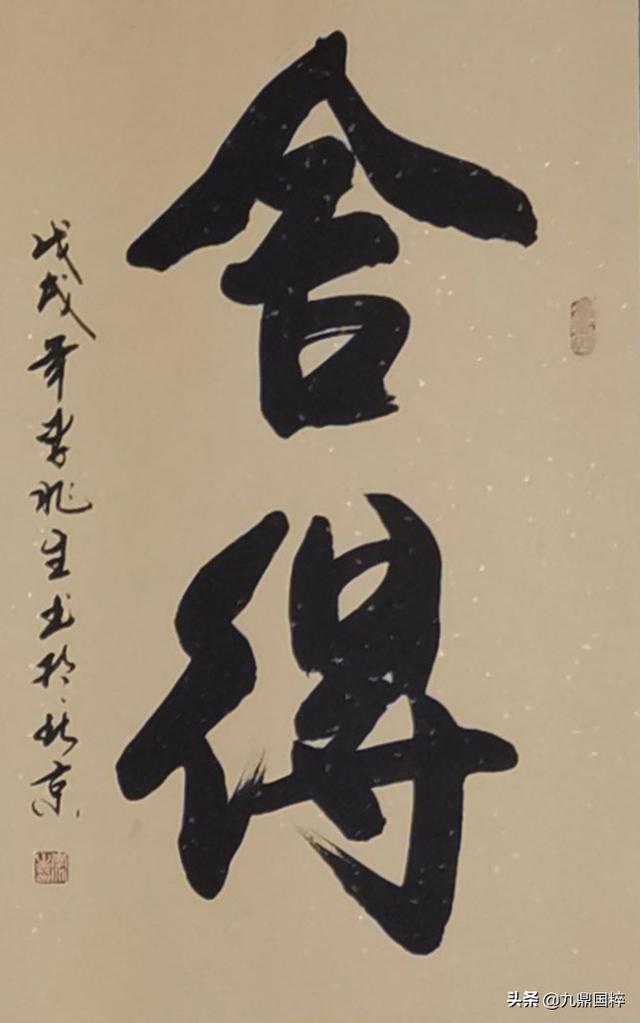 舍得
戊戌年李兆生书于北京
头条 @九鼎国粹